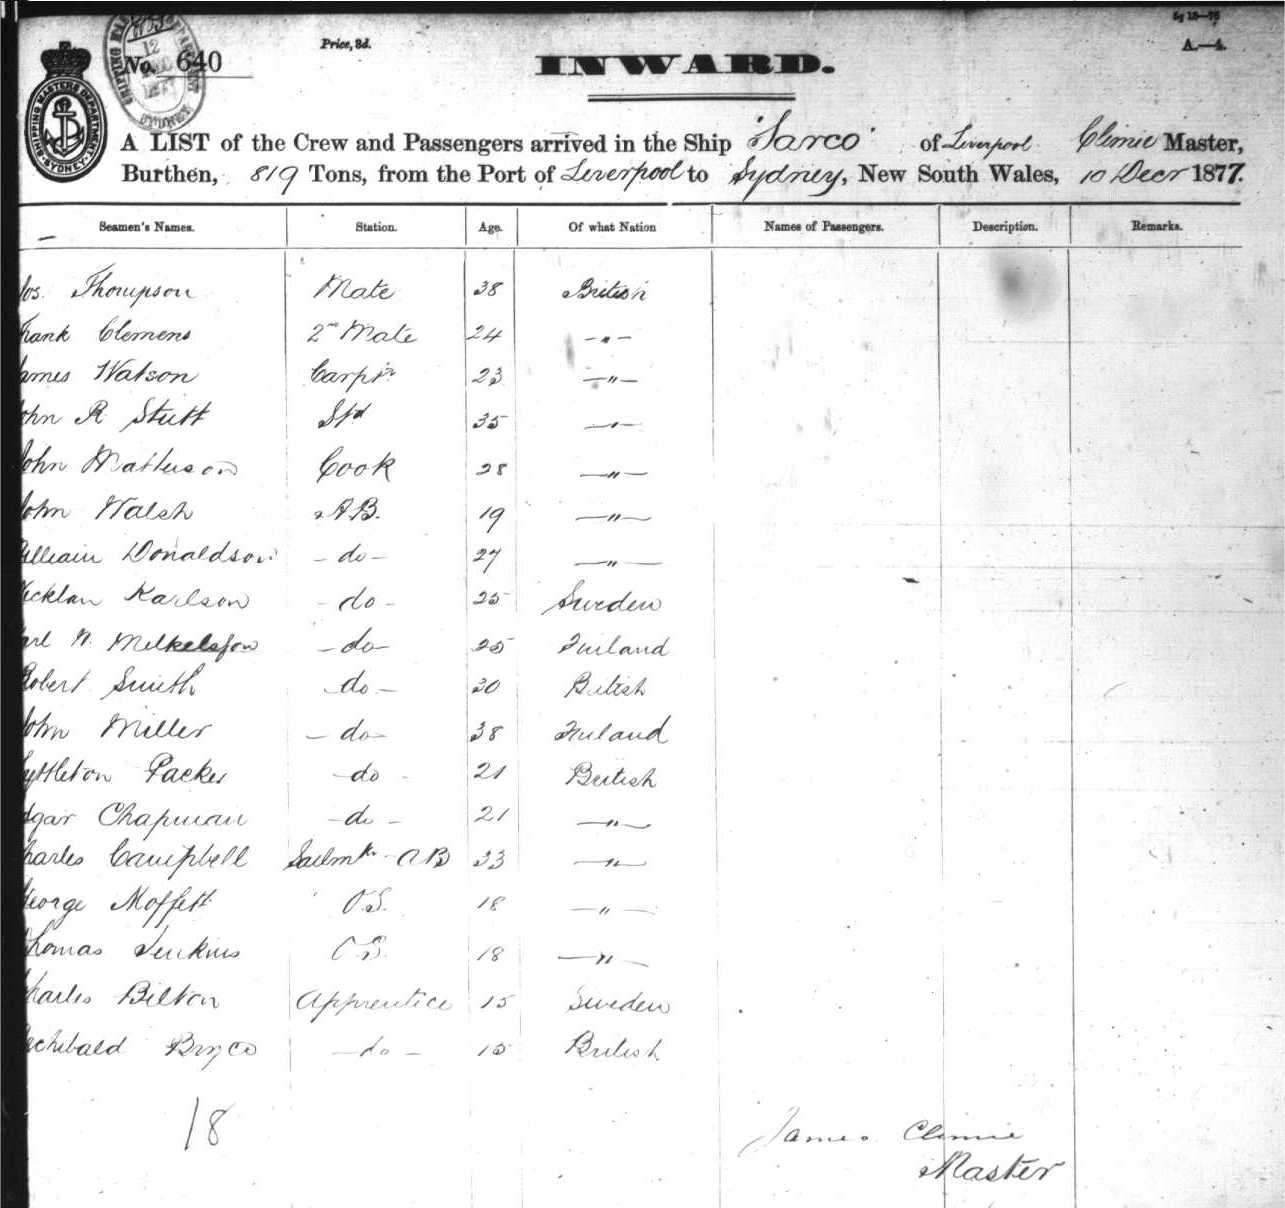 5g 18—75
No. 640
Price, 3d.
A.—4.
INWARD.
SHIPPING MASTERS DEPARTMENT SYDNEY
A LIST of the Crew and Passengers arrived in the Ship "Sarco" of Liverpool Climie Master,
Burthen, 819 Tons, from the Port of Liverpool to Sydney, New South Wales, 10 Decr 1877.
Seamen's Names. Station. Age. Of what Nation Names of Passengers. Description. Remarks.
Jos. Thompson Mate 38 British
Frank Clemens 2nd Mate 24 —"—
James Watson Carptr 23 —"—
John R Stutt Std 35 —"—
John Matterson Cook 28 —"—
John Walsh AB. 19 —"—
William Donaldson —do— 27 —"—
Karlson —do— 25 Sweden
Carl W. Melkelsson —do— 25 Finland
Robert Smith —do— 30 British
John Miller —do— 38 Finland
Lyttleton Packer —do— 21 British
Edgar Chapman —do— 21 —"—
Charles Campbell Sailmkr AB 33 —"—
George Moffett O.S. 18 —"—
Thomas Jenkins O.S. 18 —"—
Charles Bilton Apprentice 15 Sweden
Archibald Bryce —do— 15 British
18
James Climie
Master